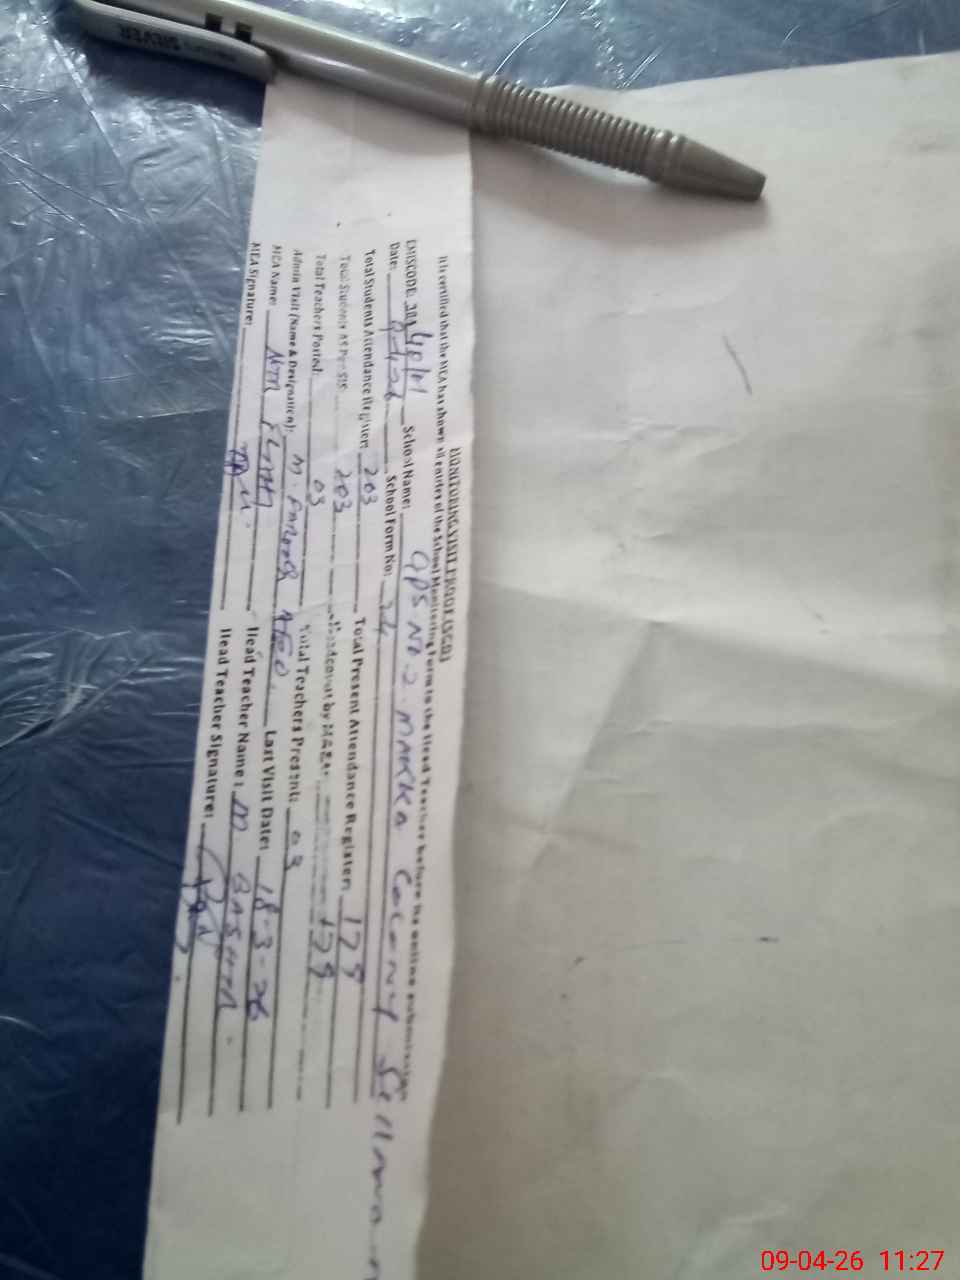 SILVER
MONITORING VISIT PROOF (SGD)
It is certified that the MEA has shown all entries of the School Monitoring Form to the Head Teacher before its online submission
EMISCODE: School Name: GPS No. 2 MAKKA COLONY
Date: 9-4-26 School Form No: 24
Total Students Attendance Register: 203 Total Present Attendance Register: 179
Total Students As Per SIS 203 Headcount by MEA: 179
Total Teachers Posted: 03 Total Teachers Present: 03
Admin Visit (Name & Designation): M. FAROOQ AEO. Last Visit Date: 18-3-26
MEA Name: Head Teacher Name: M BASHIR
MEA Signature: Head Teacher Signature:
09-04-26 11:27